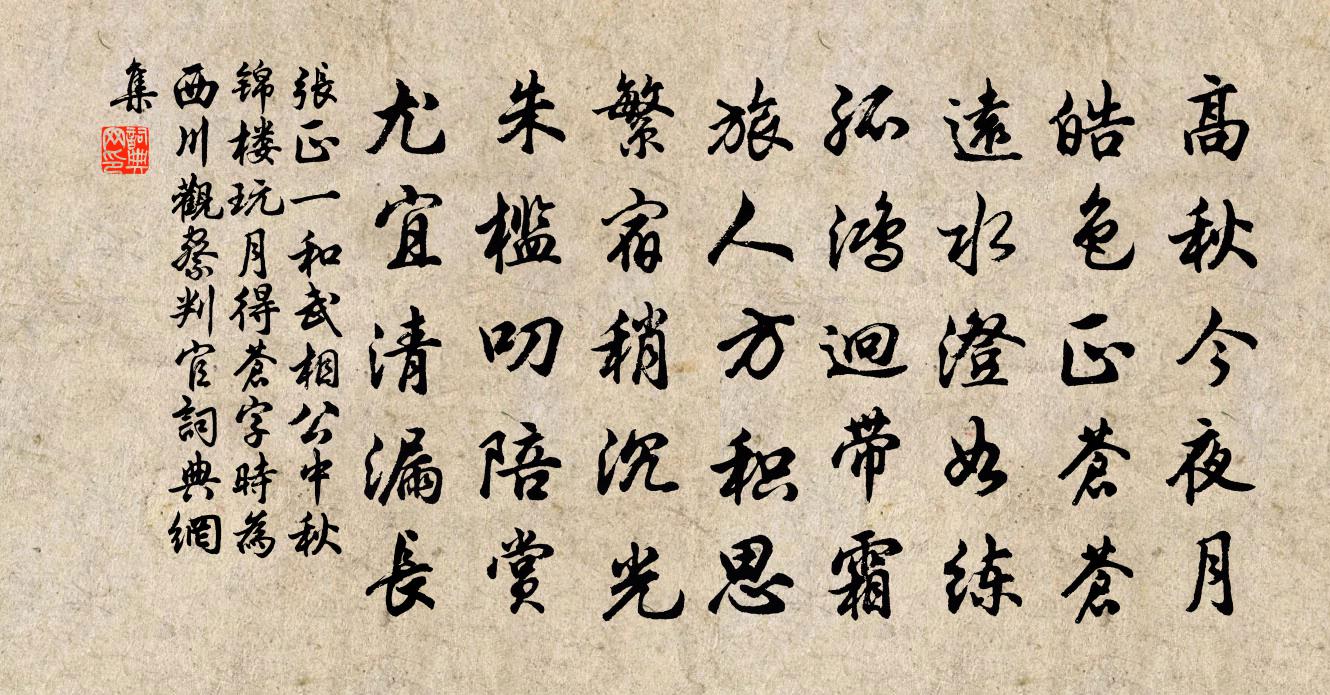 高秋今夜月
皓色正蒼蒼
遠水澄如练
孤鸿迥带霜
旅人方积思
繁宿稍沉光
朱槛叨陪赏
尤宜清漏長
張正一和武相公中秋
锦楼玩月得蒼字時為
西川觀察判官詞典網
集
詞典网印